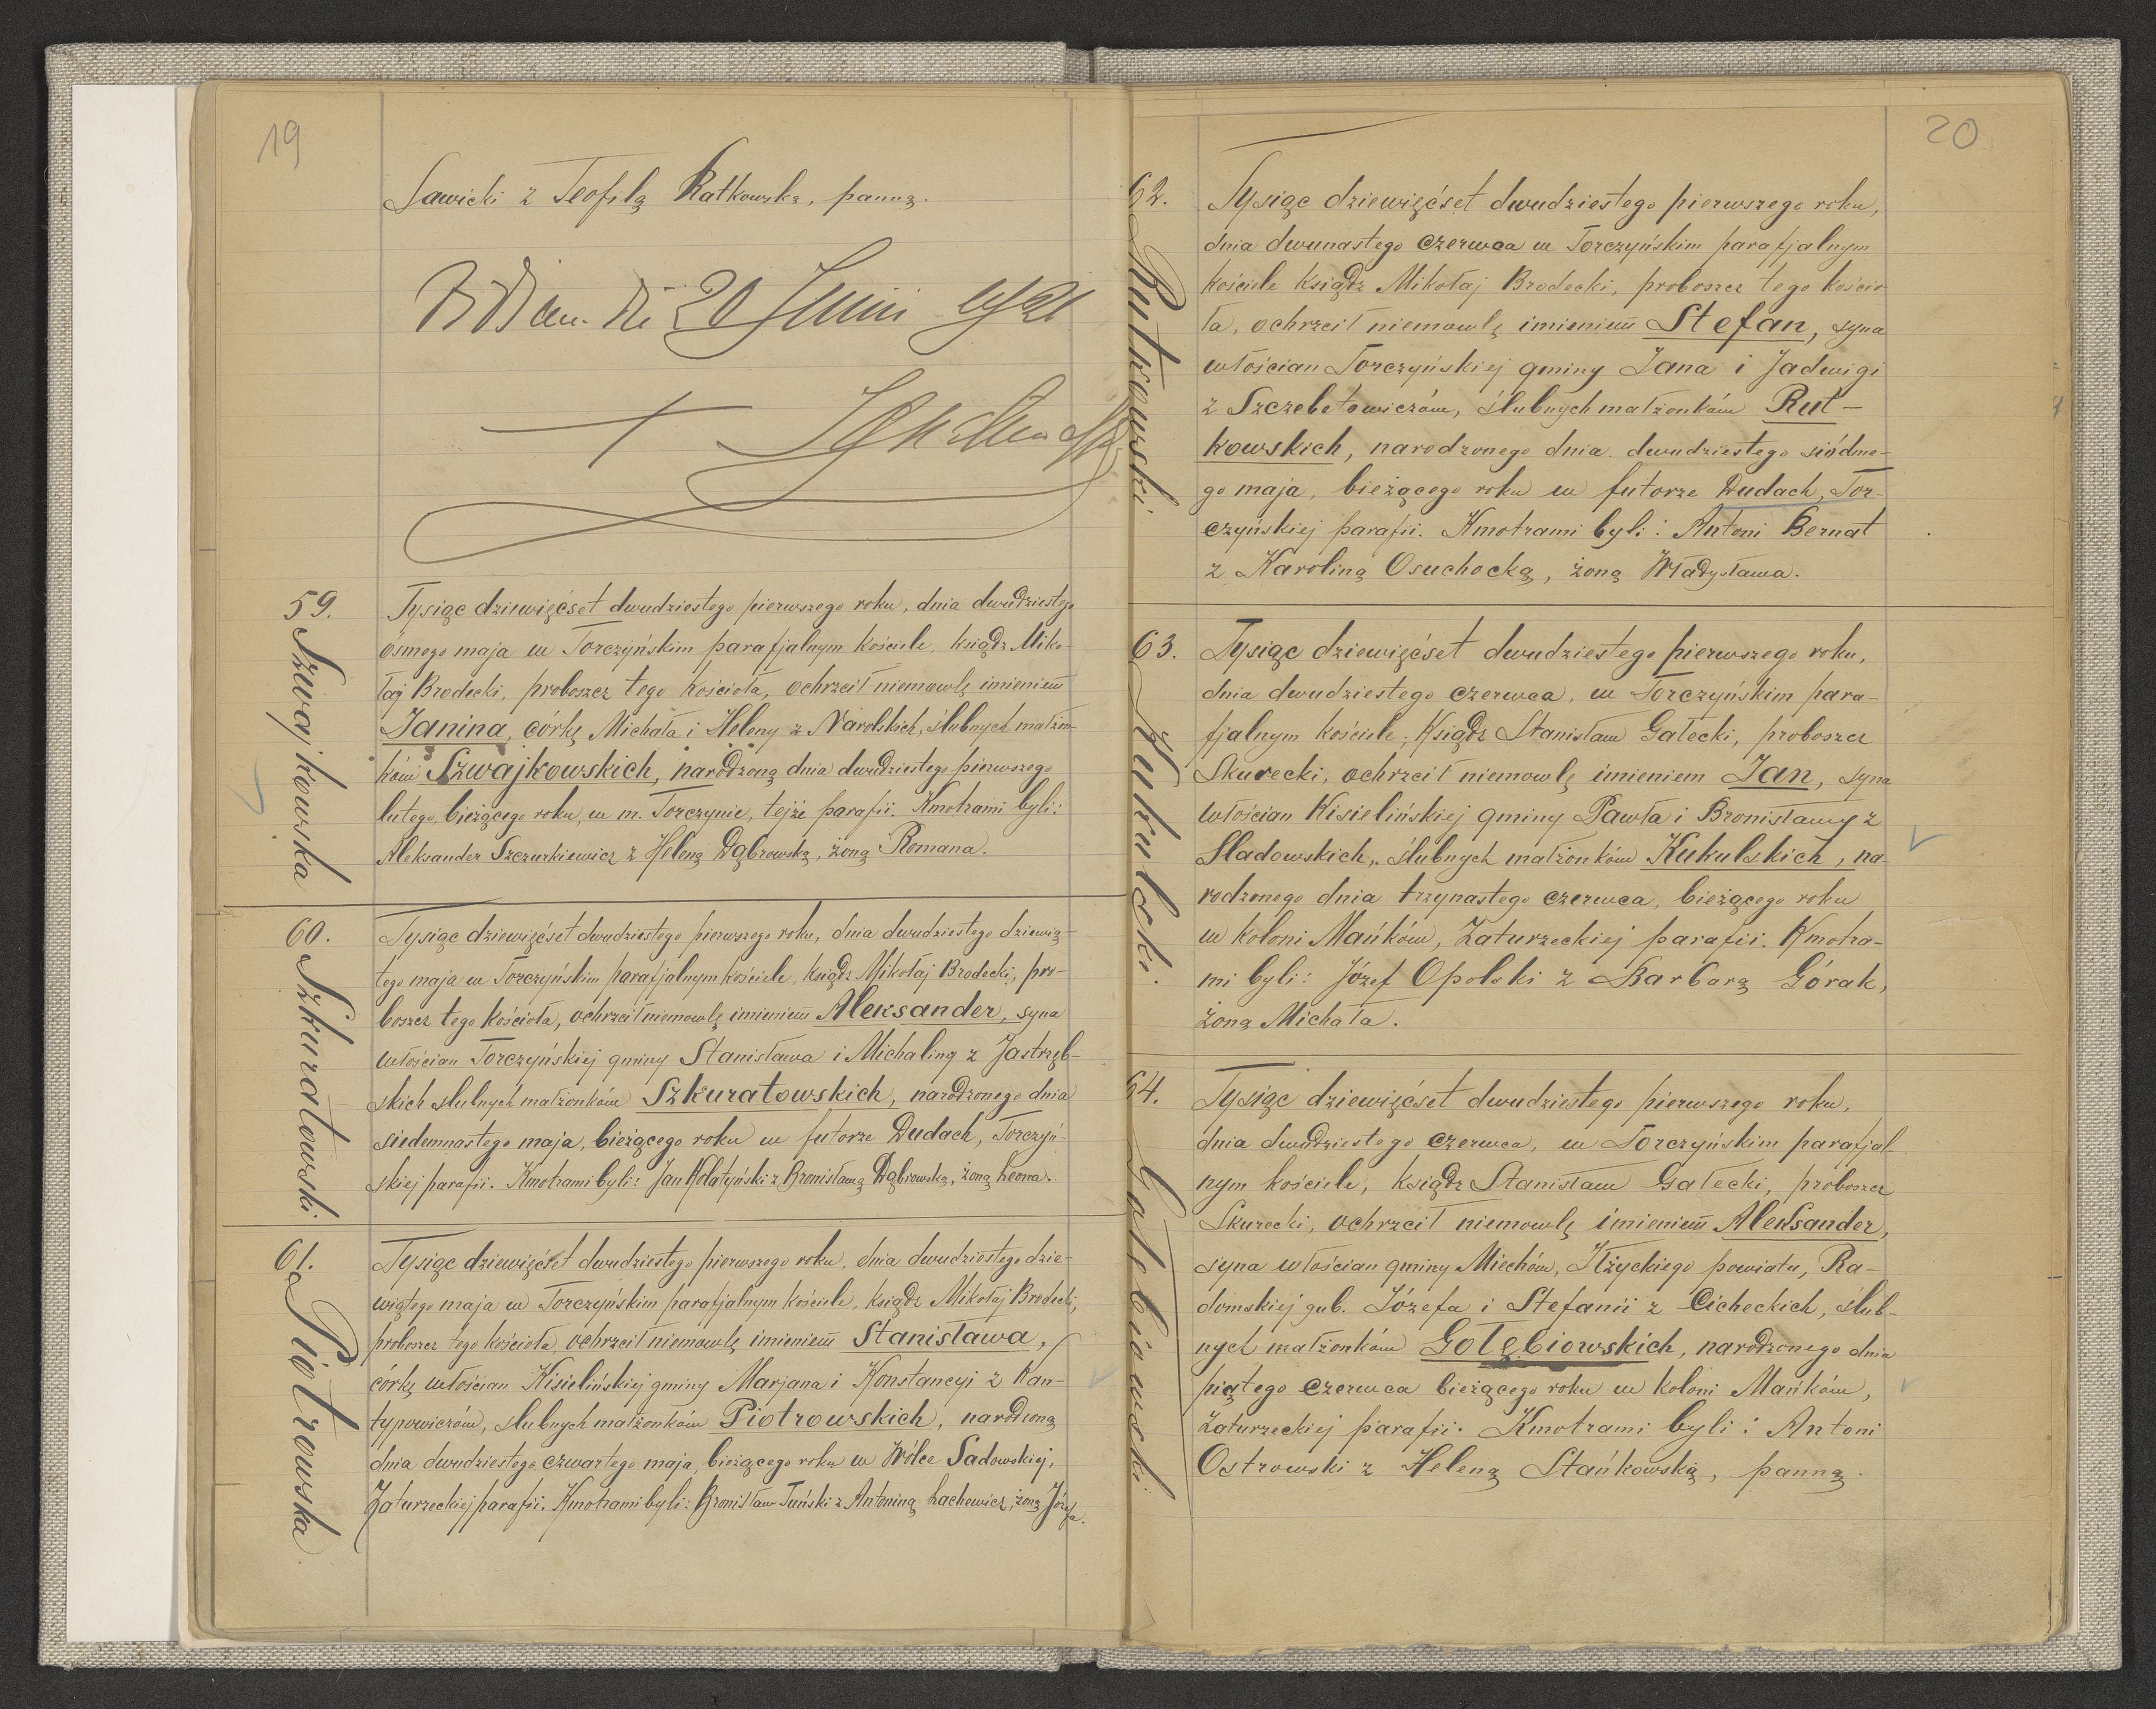 19
Sawicki z Teofilą Ratkowską, panną.
20 Junii 1921
59.
Szwajkowska
Tysiąc dziewięćset dwudziestego pierwszego roku, dnia dwudziestego
ósmego maja w Torczyńskim parafjalnym kościele, ksiądz Miko-
łaj Brodecki, proboszcz tego kościoła, ochrzcił niemowlę imieniem
Janina, córkę Michała i Heleny z Narolskich, ślubnych małżon-
ków Szwajkowskich, narodzoną dnia dwudziestego pierwszego
lutego, bieżącego roku, w m. Torczynie, tejże parafii. Kmotrami byli:
Aleksander Szczurkiewicz z Heleną Dąbrowską, żoną Romana.
60.
Szkuratowski
Tysiąc dziewięćset dwudziestego pierwszego roku, dnia dwudziestego dziewią-
tego maja w Torczyńskim parafjalnym kościele, ksiądz Mikołaj Brodecki, pro-
boszcz tego kościoła, ochrzcił niemowlę imieniem Aleksander, syna
włościan Torczyńskiej gminy Stanisława i Michaliny z Jastrzęb-
skich slubnych małżonków Szkuratowskich, narodzonego dnia
siedemnastego maja, bieżącego roku w futorze Dudach, Torczyń-
skiej parafii. Kmotrami byli: Jan Hołatyński z Bronisławą Dąbrowską, żoną Leona.
61.
Piotrowska
Tysiąc dziewięćset dwudziestego pierwszego roku, dnia dwudziestego dzie-
wiątego maja w Torczyńskim parafjalnym kościele, ksiądz Mikołaj Brodecki,
proboszcz tego kościoła, ochrzcił niemowlę imieniem Stanisława,
córkę włościan Kisielińskiej gminy Marjana i Konstancyi z Kan-
typowiczów, slubnych małżonków Piotrowskich, narodzoną
dnia dwudziestego czwartego maja, bieżącego roku w Wólce Sadowskiej,
Zaturzeckiej parafii. Kmotrami byli: Bronisław Tuński z Antoniną Lachewicz, żoną Józefa.
20
62.
Rutkowski.
Tysiąc dziewięćset dwudziestego pierwszego roku,
dnia dwunastego czerwca w Torczyńskim parafjalnym
kościele ksiądz Mikołaj Brodecki, proboszcz tego kościo-
ła, ochrzcił niemowlę imieniem Stefan, syna
włościan Torczyńskiej gminy Jana i Jadwigi
z Szczebetowiczów, ślubnych małżonków Rut-
kowskich, narodzonego dnia dwudziestego siódme-
go maja, bieżącego roku w futorze Dudach, Tor-
czyńskiej parafii. Kmotrami byli: Antoni Bernat
z Karoliną Osuchocką, żoną Władysława.
63.
Kukulski.
Tysiąc dziewięćset dwudziestego pierwszego roku,
dnia dwudziestego czerwca, w Torczyńskim para-
fjalnym kościele, Ksiądz Stanisław Gałecki, proboszcz
Skurecki, ochrzcił niemowlę imieniem Jan, syna
włościan Kisielińskiej gminy Pawła i Bronisławy z
Sladowskich, ślubnych małżonków Kukulskich, na-
rodzonego dnia trzynastego czerwca, bieżącego roku
w koloni Mańków, Zaturzeckiej parafii. Kmotra-
mi byli: Józef Opolski z Barbarą Górak,
żoną Michała.
64.
Gołębiowski.
Tysiąc dziewięćset dwudziestego pierwszego roku,
dnia dwudziestego czerwca, w Torczyńskim parafjal-
nym kościele, ksiądz Stanisław Gałecki, proboszcz
Skurecki, ochrzcił niemowlę imieniem Aleksander,
syna włościan gminy Miechów, Iłżyckiego powiatu, Ra-
domskiej gub. Józefa i Stefanii z Cicheckich, ślub-
nych małżonków Gołębiowskich, narodzonego dnia
piątego czerwca bieżącego roku w koloni Mańków,
Zaturzeckiej parafii. Kmotrami byli: Antoni
Ostrowski z Heleną Stańkowską, panną.